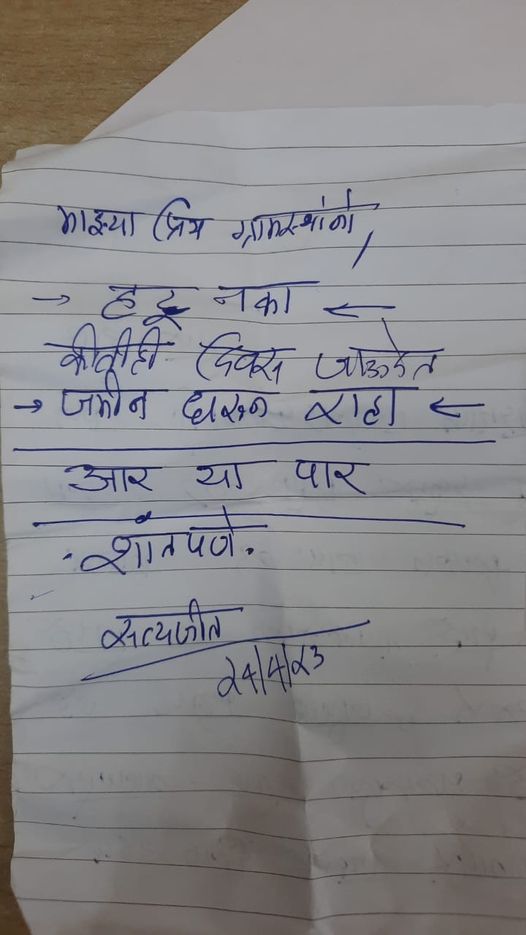 माझ्या प्रिय ग्रामस्थांनो,
→ हटू नका ←
कीतीही दिवस जाऊदेत
→ जमीन धरून राहा ←
आर या पार
. शांतपणे .
सत्यजीत
24/4/23